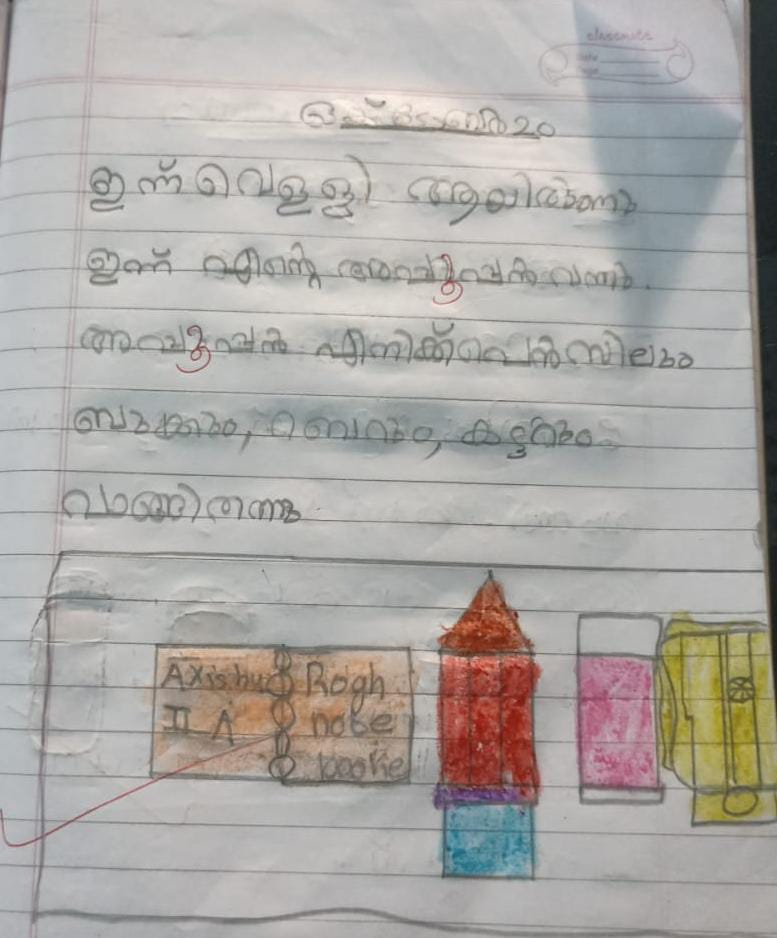 classmate
Date
Page
ഒക്ടോബർ 20
ഇന്ന് വെള്ളി ആയിരുന്നു
ഇന്ന് എന്റെ അപ്പൂപ്പൻ വന്നു.
അപ്പൂപ്പൻ എനിക്ക് പെൻസിലും
ബുക്കും, റബറും, കട്ടറും
വാങ്ങിതന്നു
Rogh
II A
note
booke